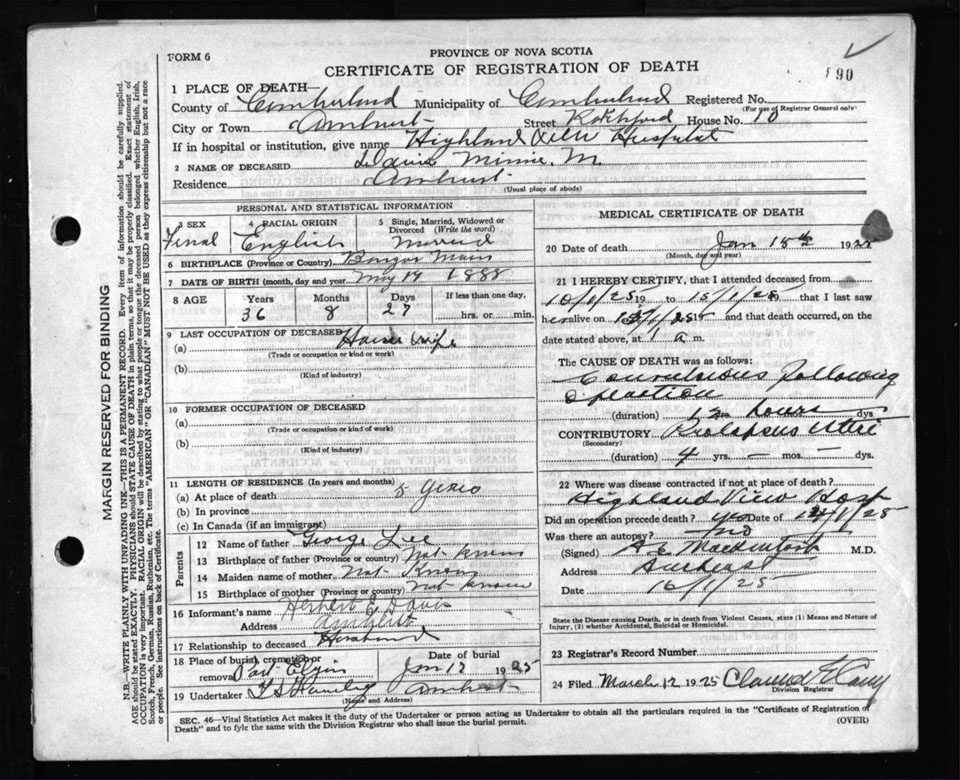 FORM 6
PROVINCE OF NOVA SCOTIA
CERTIFICATE OF REGISTRATION OF DEATH
90
1 PLACE OF DEATH
County of Cumberland Municipality of Cumberland Registered No.
(For use of Registrar General only)
City or Town Amherst Street House No. 10
If in hospital or institution, give name Highland View Hospital
2 NAME OF DECEASED Davis Minnie M.
Residence Amherst
(Usual place of abode)
PERSONAL AND STATISTICAL INFORMATION
3 SEX 4 RACIAL ORIGIN 5 Single, Married, Widowed or Divorced (Write the word)
Femal English Married
6 BIRTHPLACE (Province or Country) Bangor Main
7 DATE OF BIRTH (month, day and year) May 19 1888
8 AGE Years Months Days If less than one day,
36 8 27 hrs. or min.
9 LAST OCCUPATION OF DECEASED House wife
(a)
(Trade or occupation or kind or work)
(b)
(Kind of industry)
10 FORMER OCCUPATION OF DECEASED
(a)
(Trade or occupation or kind of work)
(b)
(Kind of industry)
11 LENGTH OF RESIDENCE (In years and months)
(a) At place of death 5 years
(b) In province
(c) In Canada (if an immigrant)
Parents
12 Name of father George Lee
13 Birthplace of father (Province or country) Not known
14 Maiden name of mother Not Known
15 Birthplace of mother (Province or country) Not known
16 Informant's name Herbert Davis
Address Amherst
17 Relationship to deceased Husband
18 Place of burial, cremation or removal Port Elgin Date of burial Jan 1925
19 Undertaker Amherst
(Name and Address)
MEDICAL CERTIFICATE OF DEATH
20 Date of death Jan 15th 192
(Month, day and year)
21 I HEREBY CERTIFY, that I attended deceased from
10/1/25 19 to 15/1/25 19 that I last saw
her alive on 15/1/25 and that death occurred, on
date stated above, at a m.
The CAUSE OF DEATH was as follows:
Convulsions following
operation
(duration) 12 hours dys
CONTRIBUTORY Prolapsus Uteri
(Secondary)
(duration) 4 yrs. — mos. — dys.
22 Where was disease contracted if not at place of death?
Highland View Hosp
Did an operation precede death? yes Date of 14/1/25
Was there an autopsy? no
(Signed) A E Mackintosh M.D.
Address Amherst
Date 16/1/25
State the Disease causing Death, or in death from Violent Causes, state (1) Means and Nature of Injury, (2) whether Accidental, Suicidal or Homicidal.
23 Registrar's Record Number
24 Filed March 12 1925
Division Registrar
SEC. 46—Vital Statistics Act makes it the duty of the Undertaker or person acting as Undertaker to obtain all the particulars required in the "Certificate of Registration of
Death" and to fyle the same with the Division Registrar who shall issue the burial permit.
(OVER)
MARGIN RESERVED FOR BINDING
N.B.—WRITE PLAINLY WITH UNFADING INK—THIS IS A PERMANENT RECORD. Every item of information should be carefully supplied.
AGE should be stated EXACTLY. PHYSICIANS should STATE CAUSE OF DEATH in plain terms, so that it may be properly classified. Exact statement of
OCCUPATION is very important. RACIAL ORIGIN will be described by stating to what people or tongue the deceased person belonged whether English, Irish,
Scotch, French, German, Russian, Ruthenian, etc. The terms "AMERICAN" OR "CANADIAN" MUST NOT BE USED as they express citizenship but not a race
or people. See instructions on back of Certificate.